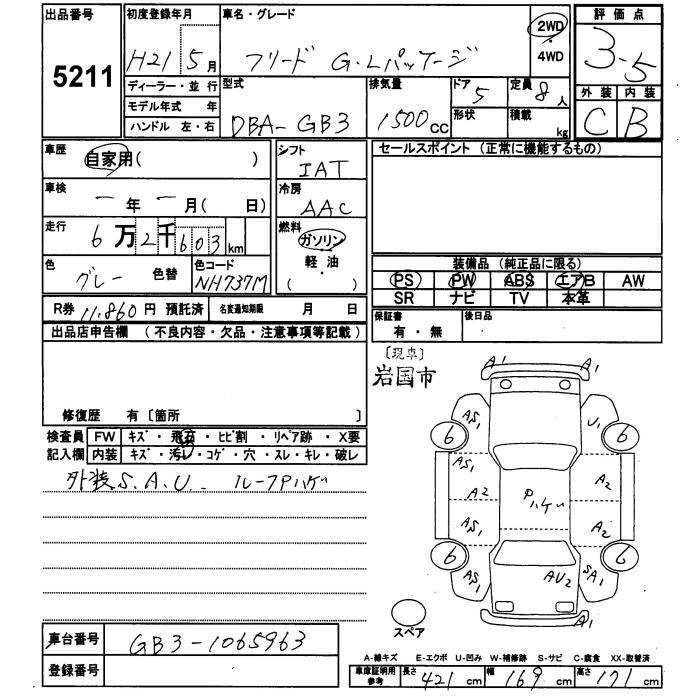 出品番号 5211
初度登録年月 H21 5月
車名・グレード フリード G・Lパッケージ
2WD
4WD
評価点 3.5
外装 C 内装 B
ディーラー・並行
モデル年式 年
ハンドル 左・右
型式 DBA-GB3
排気量 1500cc
ドア 5
形状
定員 8人
積載 kg
車歴 自家用( )
シフト IAT
セールスポイント (正常に機能するもの)
車検 ー年ー月( 日)
冷房 AAC
走行 6万2千603km
燃料 ガソリン
軽・油
( )
色 グレー 色替
色コード NH737M
装備品 (純正品に限る)
PS PW ABS エアB AW
SR ナビ TV 本革
R券 11.860円 預託済
名変通知期限 月 日
保証書 有・無
後日品
出品店申告欄 (不良内容・欠品・注意事項等記載)
〔現車〕
岩国市
修復歴 有〔箇所
検査員記入欄
FW キズ・飛石・ヒビ割・リペア跡・X要
内装 キズ・汚レ・コゲ・穴・スレ・キレ・破レ
外装S.A.U. ルーフPハゲ
A1 A1
AS1 U1
6 6
AS1 A2
A2 Pハゲ
AS1 A2
6 6
AS1 AU2 SA1
A1
スペア
車台番号 GB3-1065963
登録番号
A-線キズ E-エクボ U-凹み W-補修跡 S-サビ C-腐食 XX-取替済
車庫証明用参考 長さ 421cm 幅 169cm 高さ 171cm